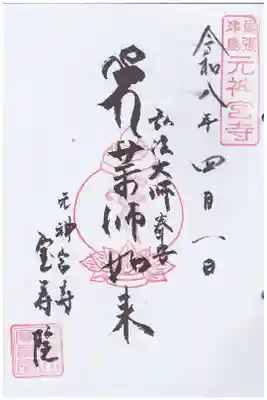 尾張
津島
元神宮寺
令和八年 四月一日
弘法大師奉安
薬師如来
元神宮寺
宝寿院